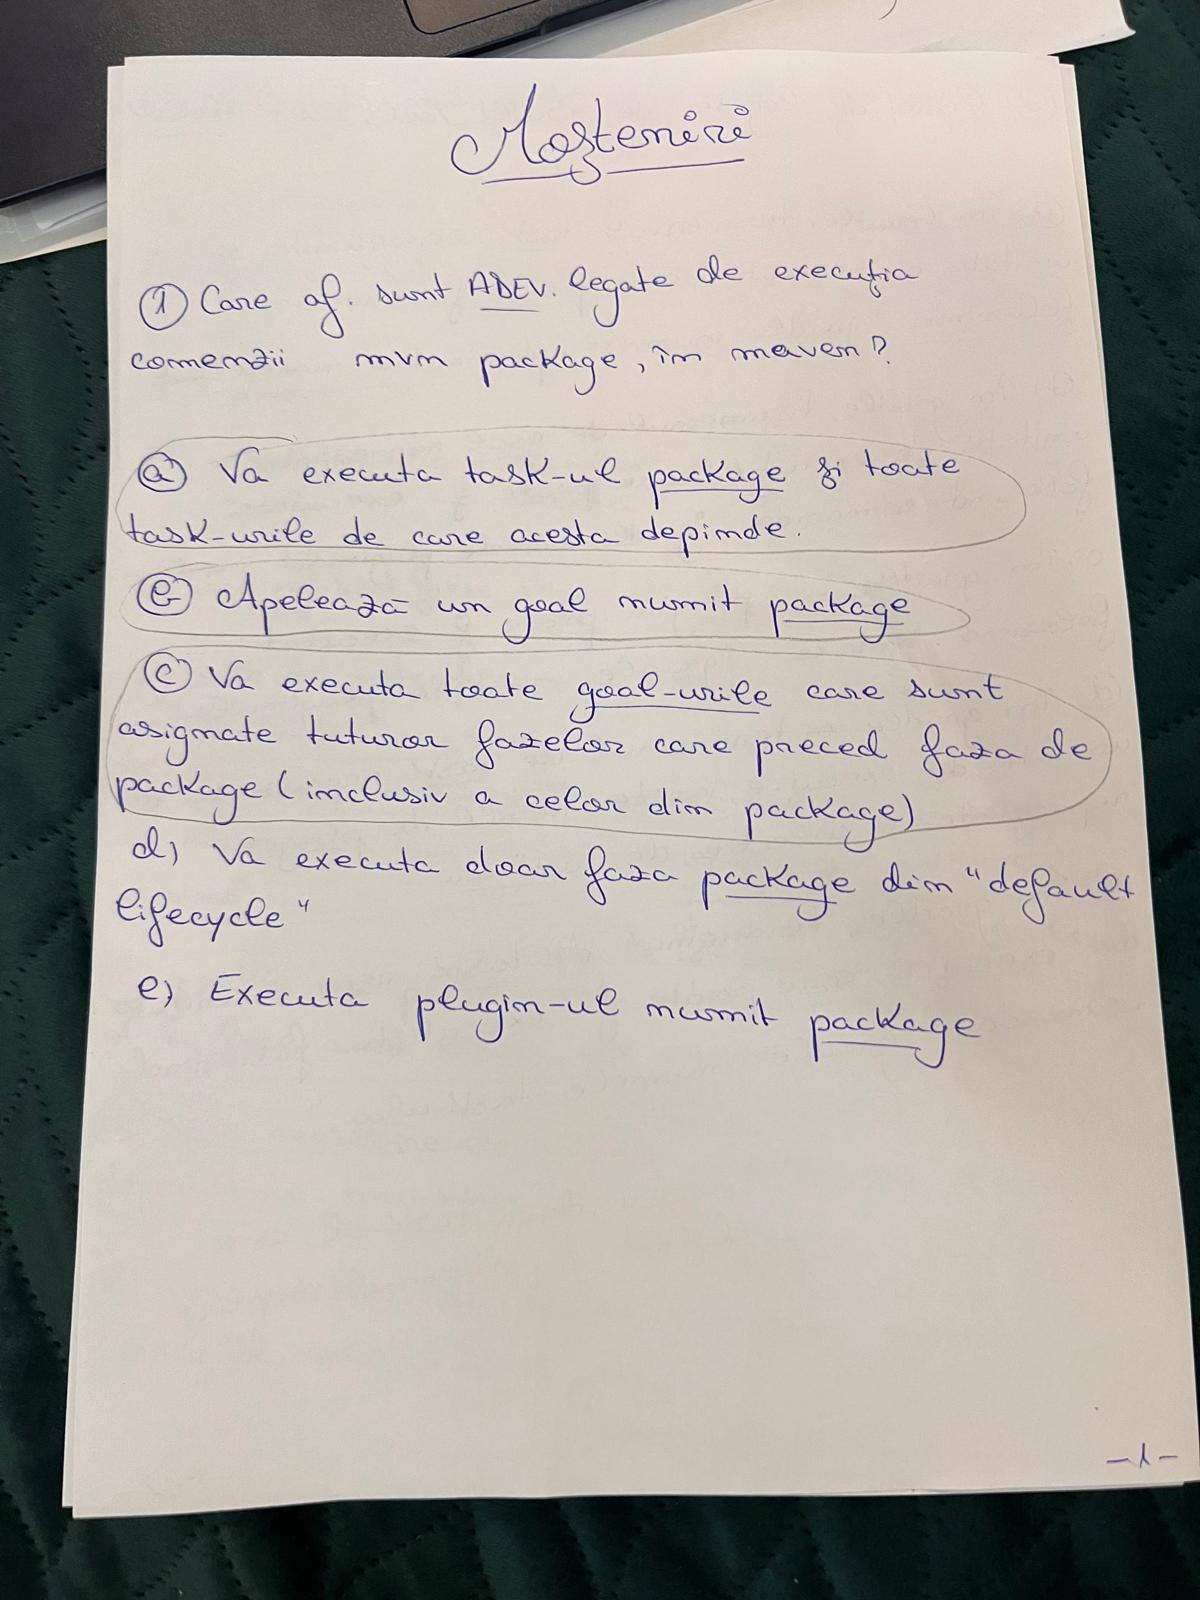 Moșteniri
① Care af. sunt ADEV. legate de execuția
comenzii mvn package, în maven?
ⓐ Va executa task-ul package și toate
task-urile de care acesta depinde.
ⓑ Apelează un goal numit package
ⓒ Va executa toate goal-urile care sunt
asignate tuturor fazelor care preced faza de
package (inclusiv a celor din package)
d) Va executa doar faza package din "default
lifecycle"
e) Executa plugin-ul numit package
-1-